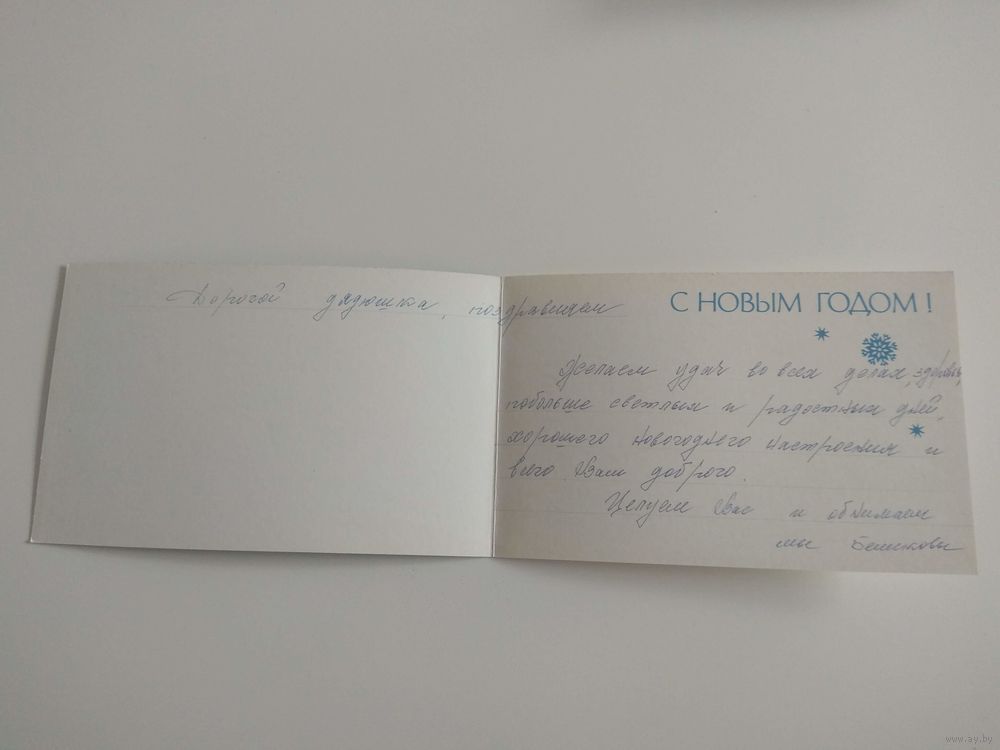 Дорогой дядюшка, поздравляем
С НОВЫМ ГОДОМ!
Желаем удач во всех делах, здоровья,
побольше светлых и радостных дней,
хорошего новогоднего настроения и
всего Вам доброго.
Целуем Вас и обнимаем
мы
www.ay.by